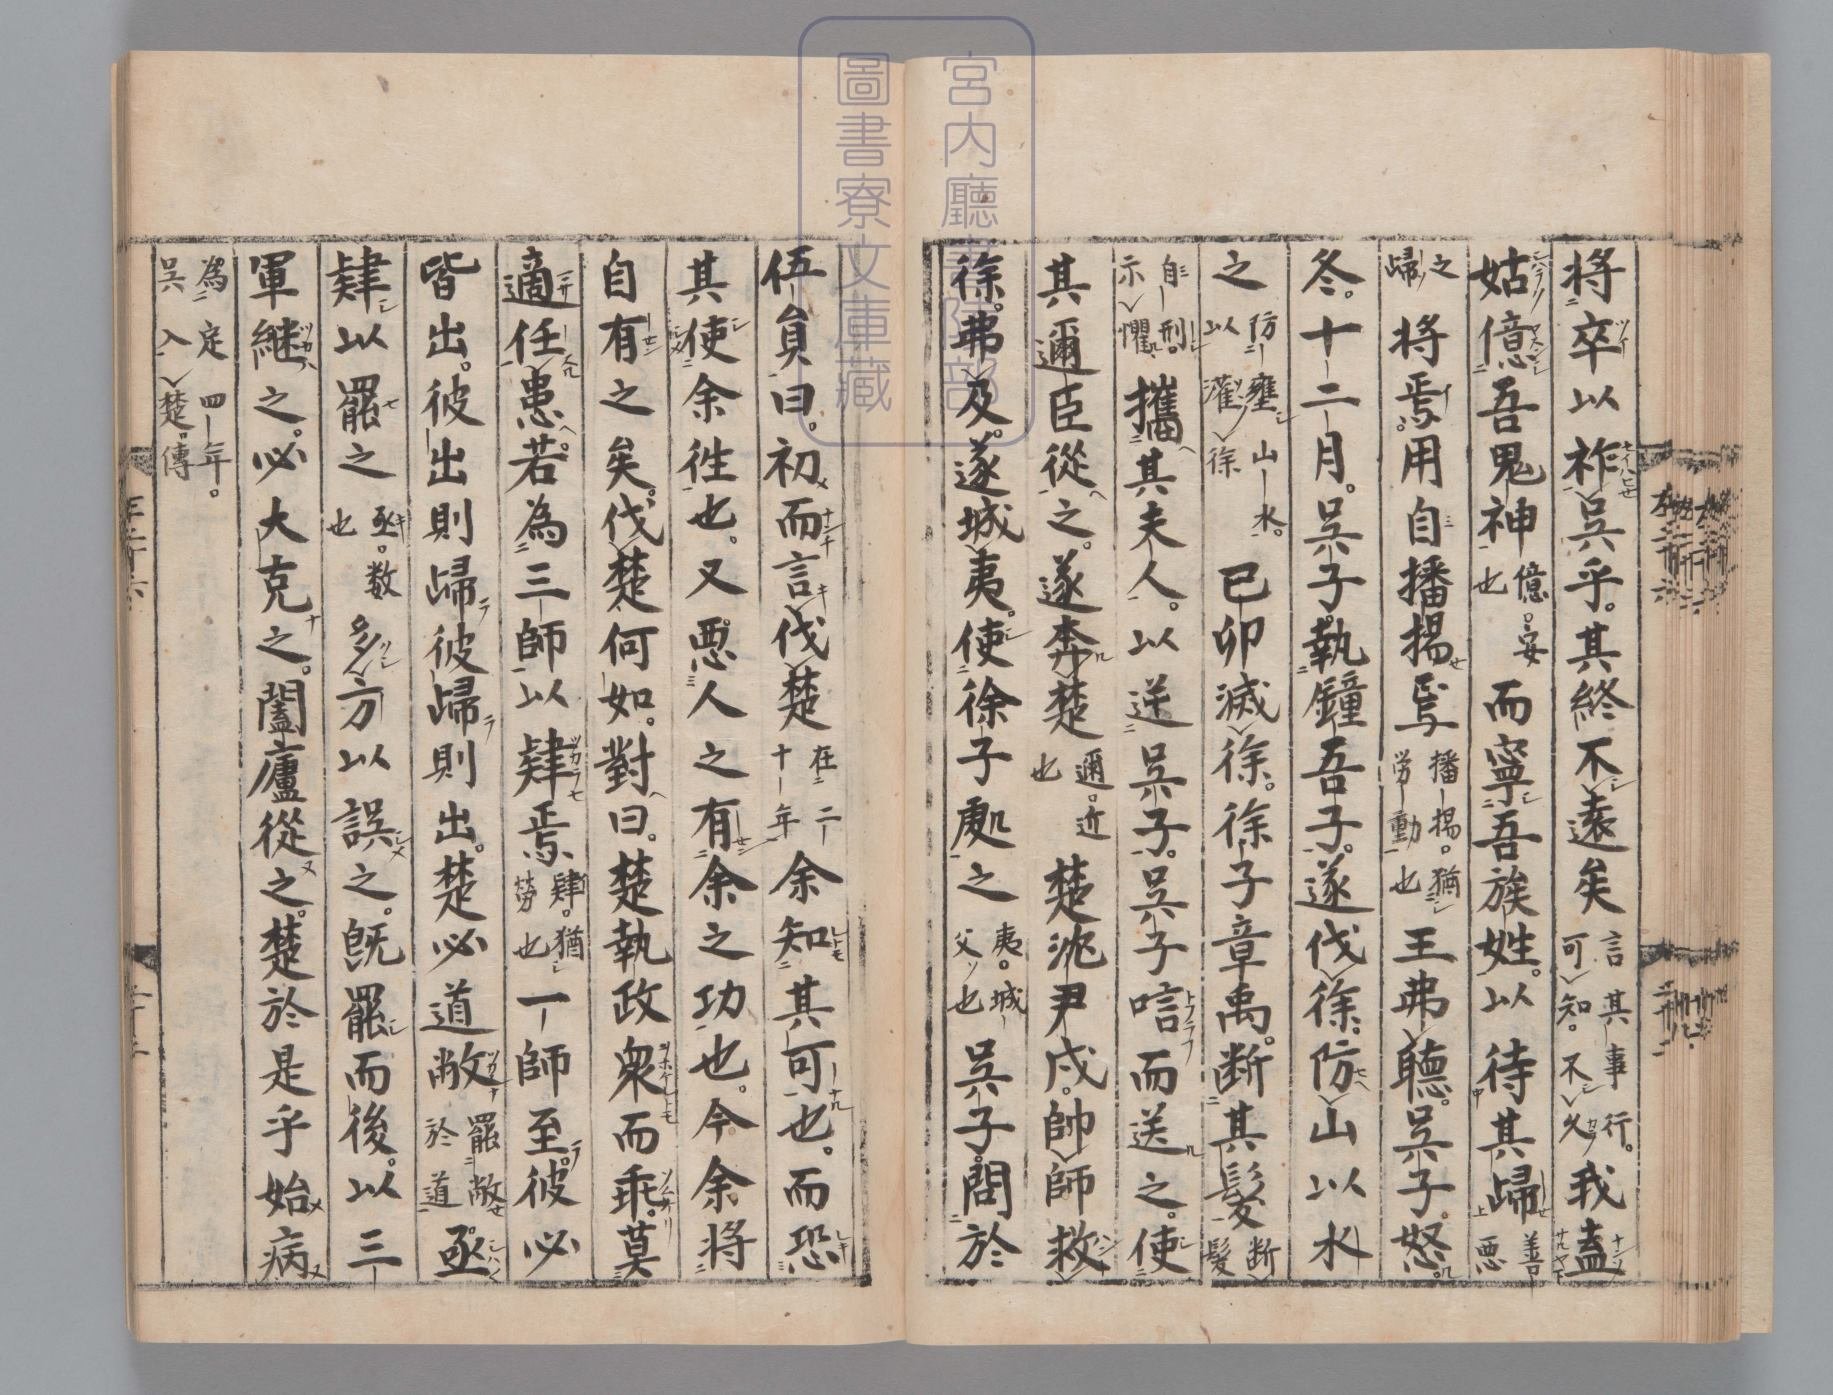 將卒以祚吳乎。其終不遠矣言其事行。可知。不久我盍
姑億吾鬼神億。安也而寧吾族姓。以待其歸善惡
之歸將焉。用自播揚焉播揚。猶勞動也王弗聽。吳子怒。
冬。十二月。吳子執鍾吾子。遂伐徐。防山以水
之防壅山水。以灌徐已卯滅徐。徐子章禹。斷其髮斷髮
自刑。示懼攜其夫人。以逆吳子。吳子唁而送之。使
其邇臣從之。遂奔楚邇。近也楚沈尹戌。帥師救
徐。弗及。遂城夷。使徐子處之夷。城父也吳子問於
伍員曰。初而言伐楚在二十年余知其可也。而恐
其使余往也。又惡人之有余之功也。今余將
自有之矣。伐楚何如。對曰。楚執政衆而乖。莫
適任患。若為三師以肄焉肄。猶勞也一師至。彼必
皆出。彼出則歸彼歸則出。楚必道敝罷敝於道亟
肄以罷之亟。數也多方以誤之。既罷而後。以三
軍繼之。必大克之。闔廬從之。楚於是乎始病
為定四年。吳入楚。傳
宮内廳書陵部
圖書寮文庫藏